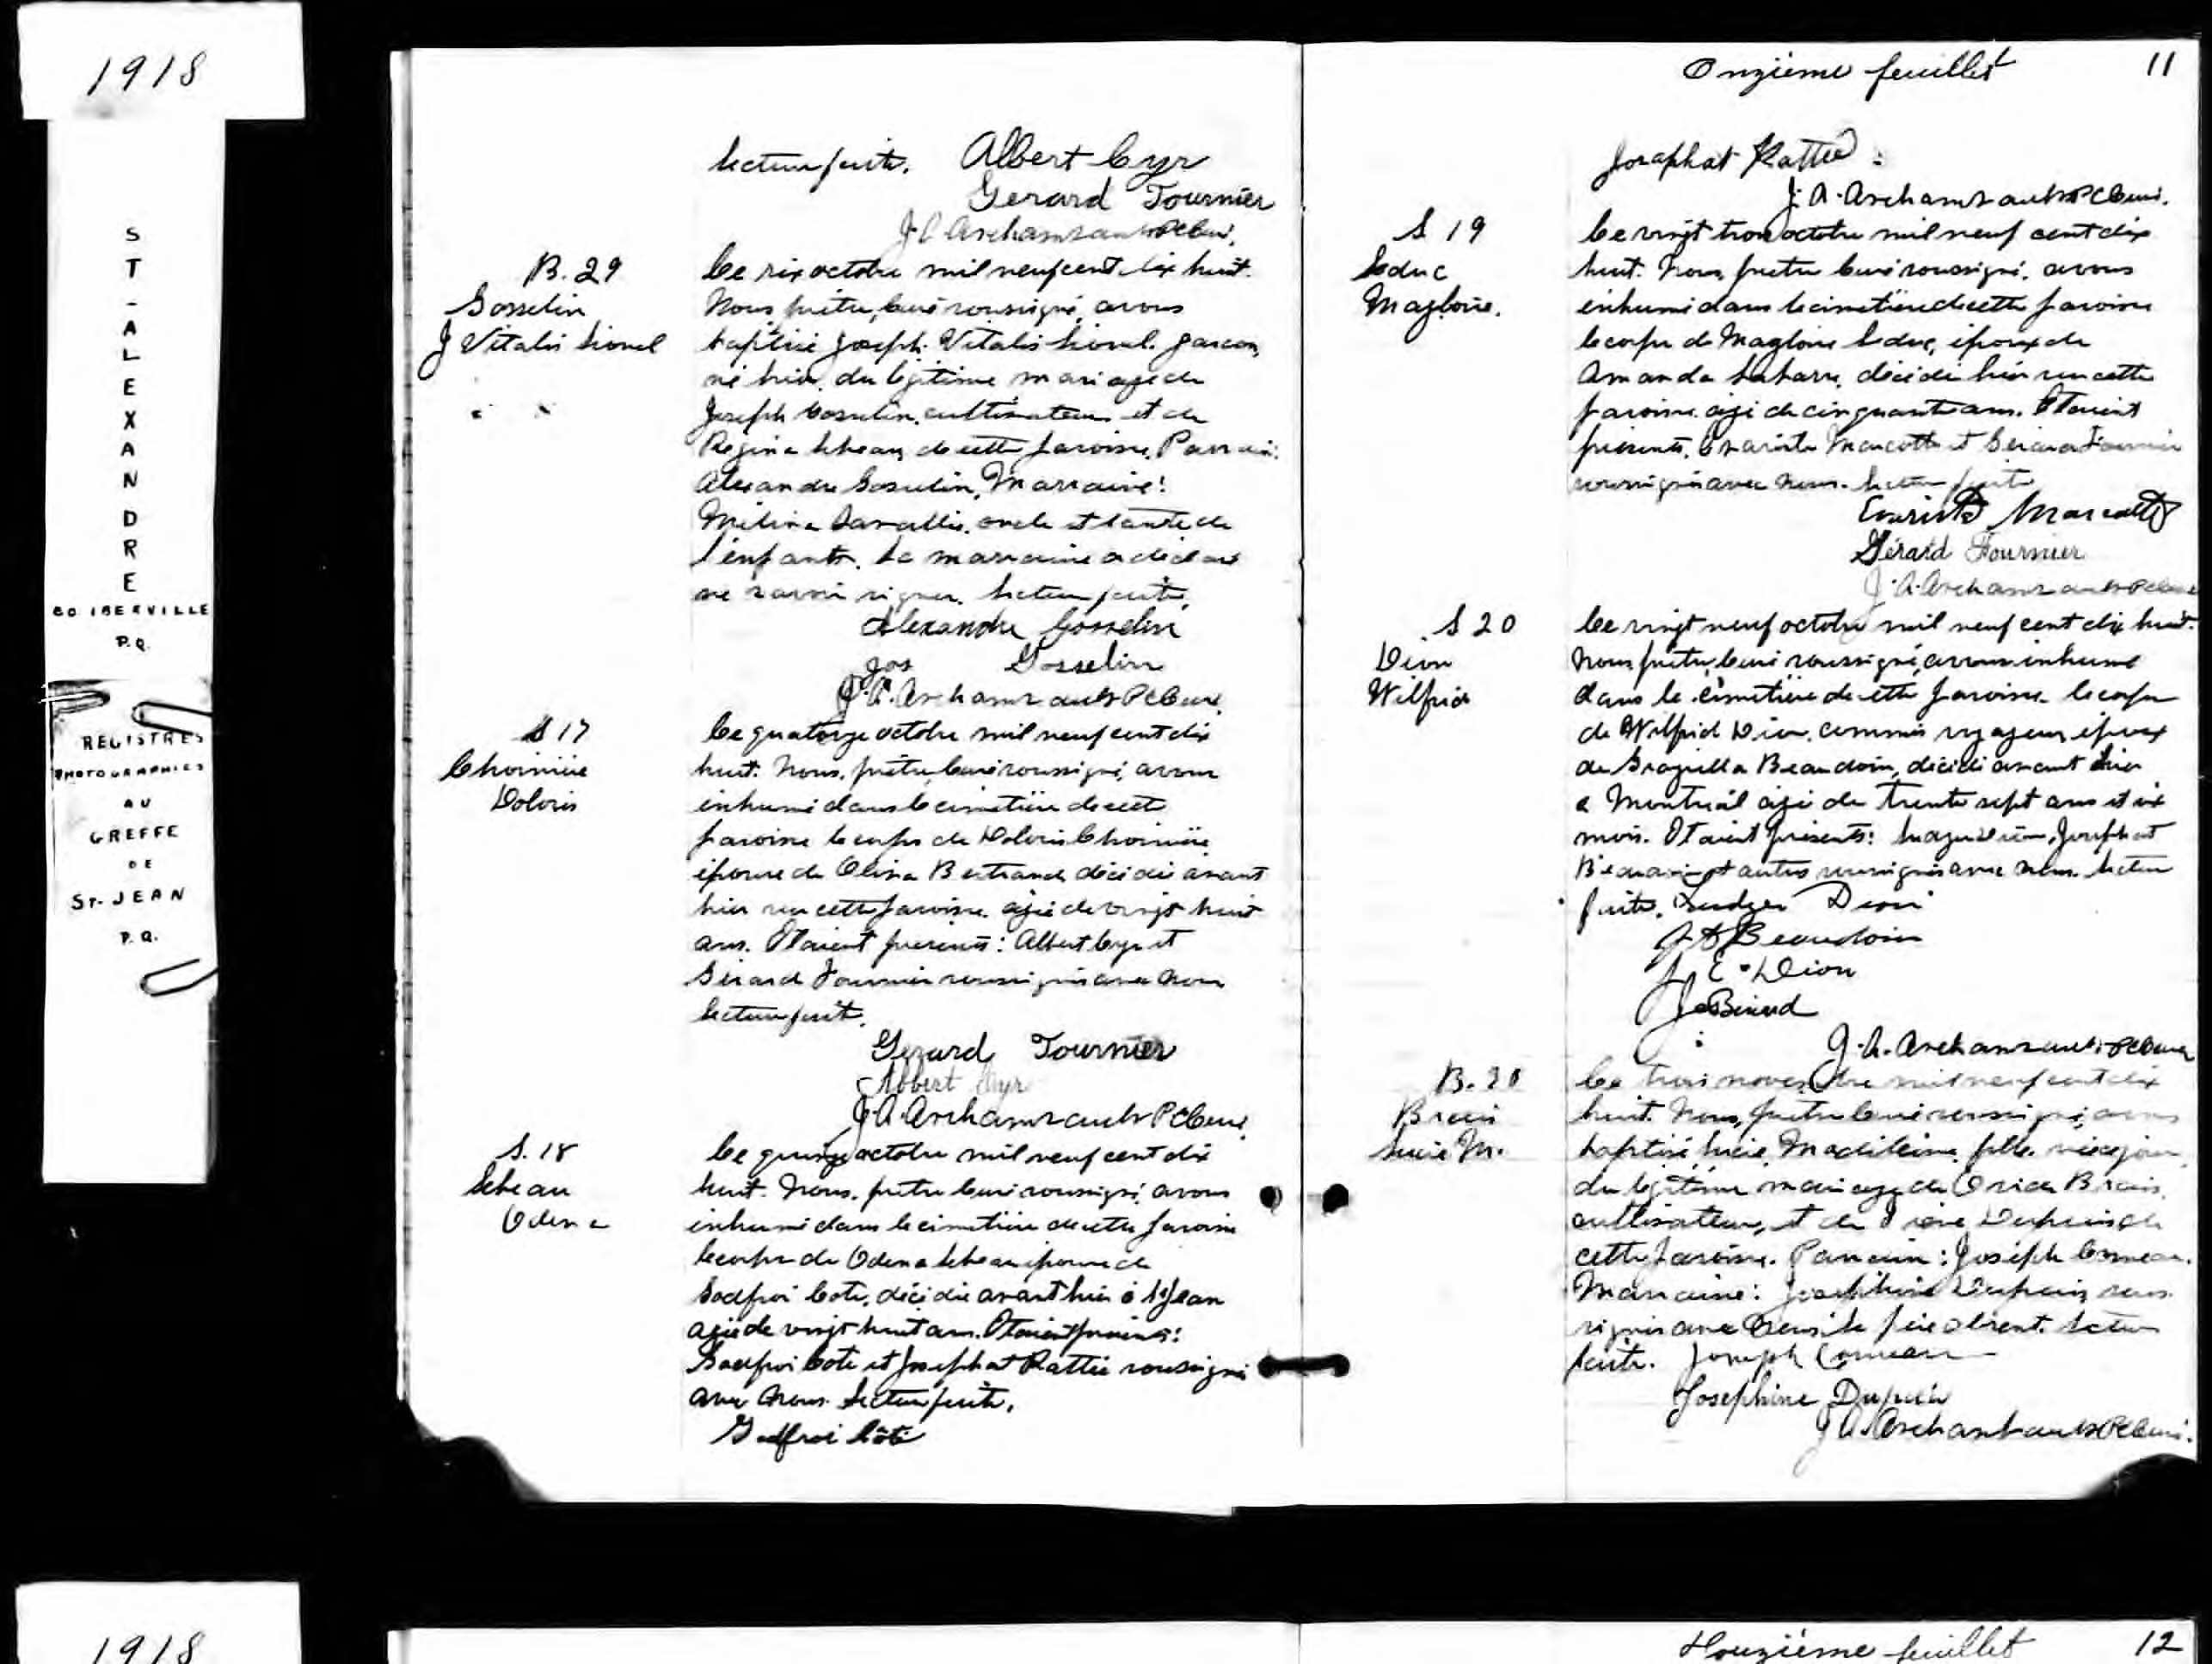 1918
ST-ALEXANDRE
CO IBERVILLE
P.Q.
REGISTRES
PHOTOGRAPHIES
AU
GREFFE
DE
ST-JEAN
P.Q.
lecture faite. Albert Cyr
Gerard Fournier
J. A. Archambault Ptre Curé.
B. 29
Gosselin
J Vitalis Lionel
Le six octobre mil neuf cent dix huit.
Nous prêtre, curé soussigné, avons
baptisé Joseph Vitalis Lionel. garcon,
né hier, du légitime mariage de
Joseph Gosselin, cultivateur et de
Regina Lebeau, de cette paroisse. Parrain:
Alexandre Gosselin, Marraine:
oncle et tante de
l'enfant. La marraine a déclaré
ne savoir signer. Lecture faite,
Alexandre Gosselin
Jos Gosselin
J. A. Archambault Ptre Curé.
S 17
Choinière
Doloris
Le quatorze octobre mil neuf cent dix
huit. Nous, prêtre, curé soussigné, avons
inhumé dans le cimetière de cette
paroisse le corps de Doloris Choinière
épouse de Bertrand, décédée avant
hier en cette paroisse. agée de vingt huit
ans. Etaient présents: Albert Cyr et
Gérard Fournier soussignés avec nous
lecture faite.
Gerard Fournier
Albert Cyr
J. A. Archambault Ptre Curé.
S. 18
Lebeau
Odena
Le quinze octobre mil neuf cent dix
huit. Nous, prêtre curé soussigné, avons
inhumé dans le cimetière de cette paroisse
le corps de Odena Lebeau épouse de
Godfroi Coté, décédée avant hier à St Jean
agée de vingt huit ans. Etaient présents:
Godfroi Coté et Josephat Rattée soussignés
avec nous. Lecture faite.
Godfroi Côté
Onzième feuillet 11
Josaphat Rattée
J. A. Archambault Ptre Curé.
S 19
Leduc
Magloire.
Le vingt trois octobre mil neuf cent dix
huit. Nous, prêtre curé soussigné, avons
inhumé dans le cimetière de cette paroisse
le corps de Magloire Leduc, époux de
Amanda décédé hier en cette
paroisse agé de cinquante ans. Etaient
présents, Evariste Marcotte et Gérard Fournier
soussignés avec nous. Lecture faite
Evariste Marcotte
Gérard Fournier
J. A. Archambault Ptre Curé
S 20
Dion
Wilfrid
Le vingt neuf octobre mil neuf cent dix huit.
Nous prêtre, curé soussigné, avons inhumé
dans le cimetière de cette paroisse le corps
de Wilfrid Dion, commis voyageur, époux
de Graziella Beaudoin, décédé avant hier
à Montréal agé de trente sept ans et six
mois. Etaient présents: Josephat
et autres soussignés avec nous. Lecture
faite. Ludger Dion
J A Beaudoin
J. E. Dion
B.
Brais
Lucie M.
J. A. Archambault Ptre Curé
Le trois novembre mil neuf cent dix
huit. Nous, prêtre curé soussigné, avons
baptisé, Lucie, Madeleine, fille, née ce jour,
du légitime mariage de Brais,
cultivateur, et de Dupuis de
cette paroisse. Parrain: Joseph Comeau.
Marraine: Josephine Dupuis sous
signés avec nous, le père absent. Lecture
faite. Joseph Comeau
Josephine Dupuis
J. A. Archambault Ptre Curé.
1918
Douzième feuillet 12